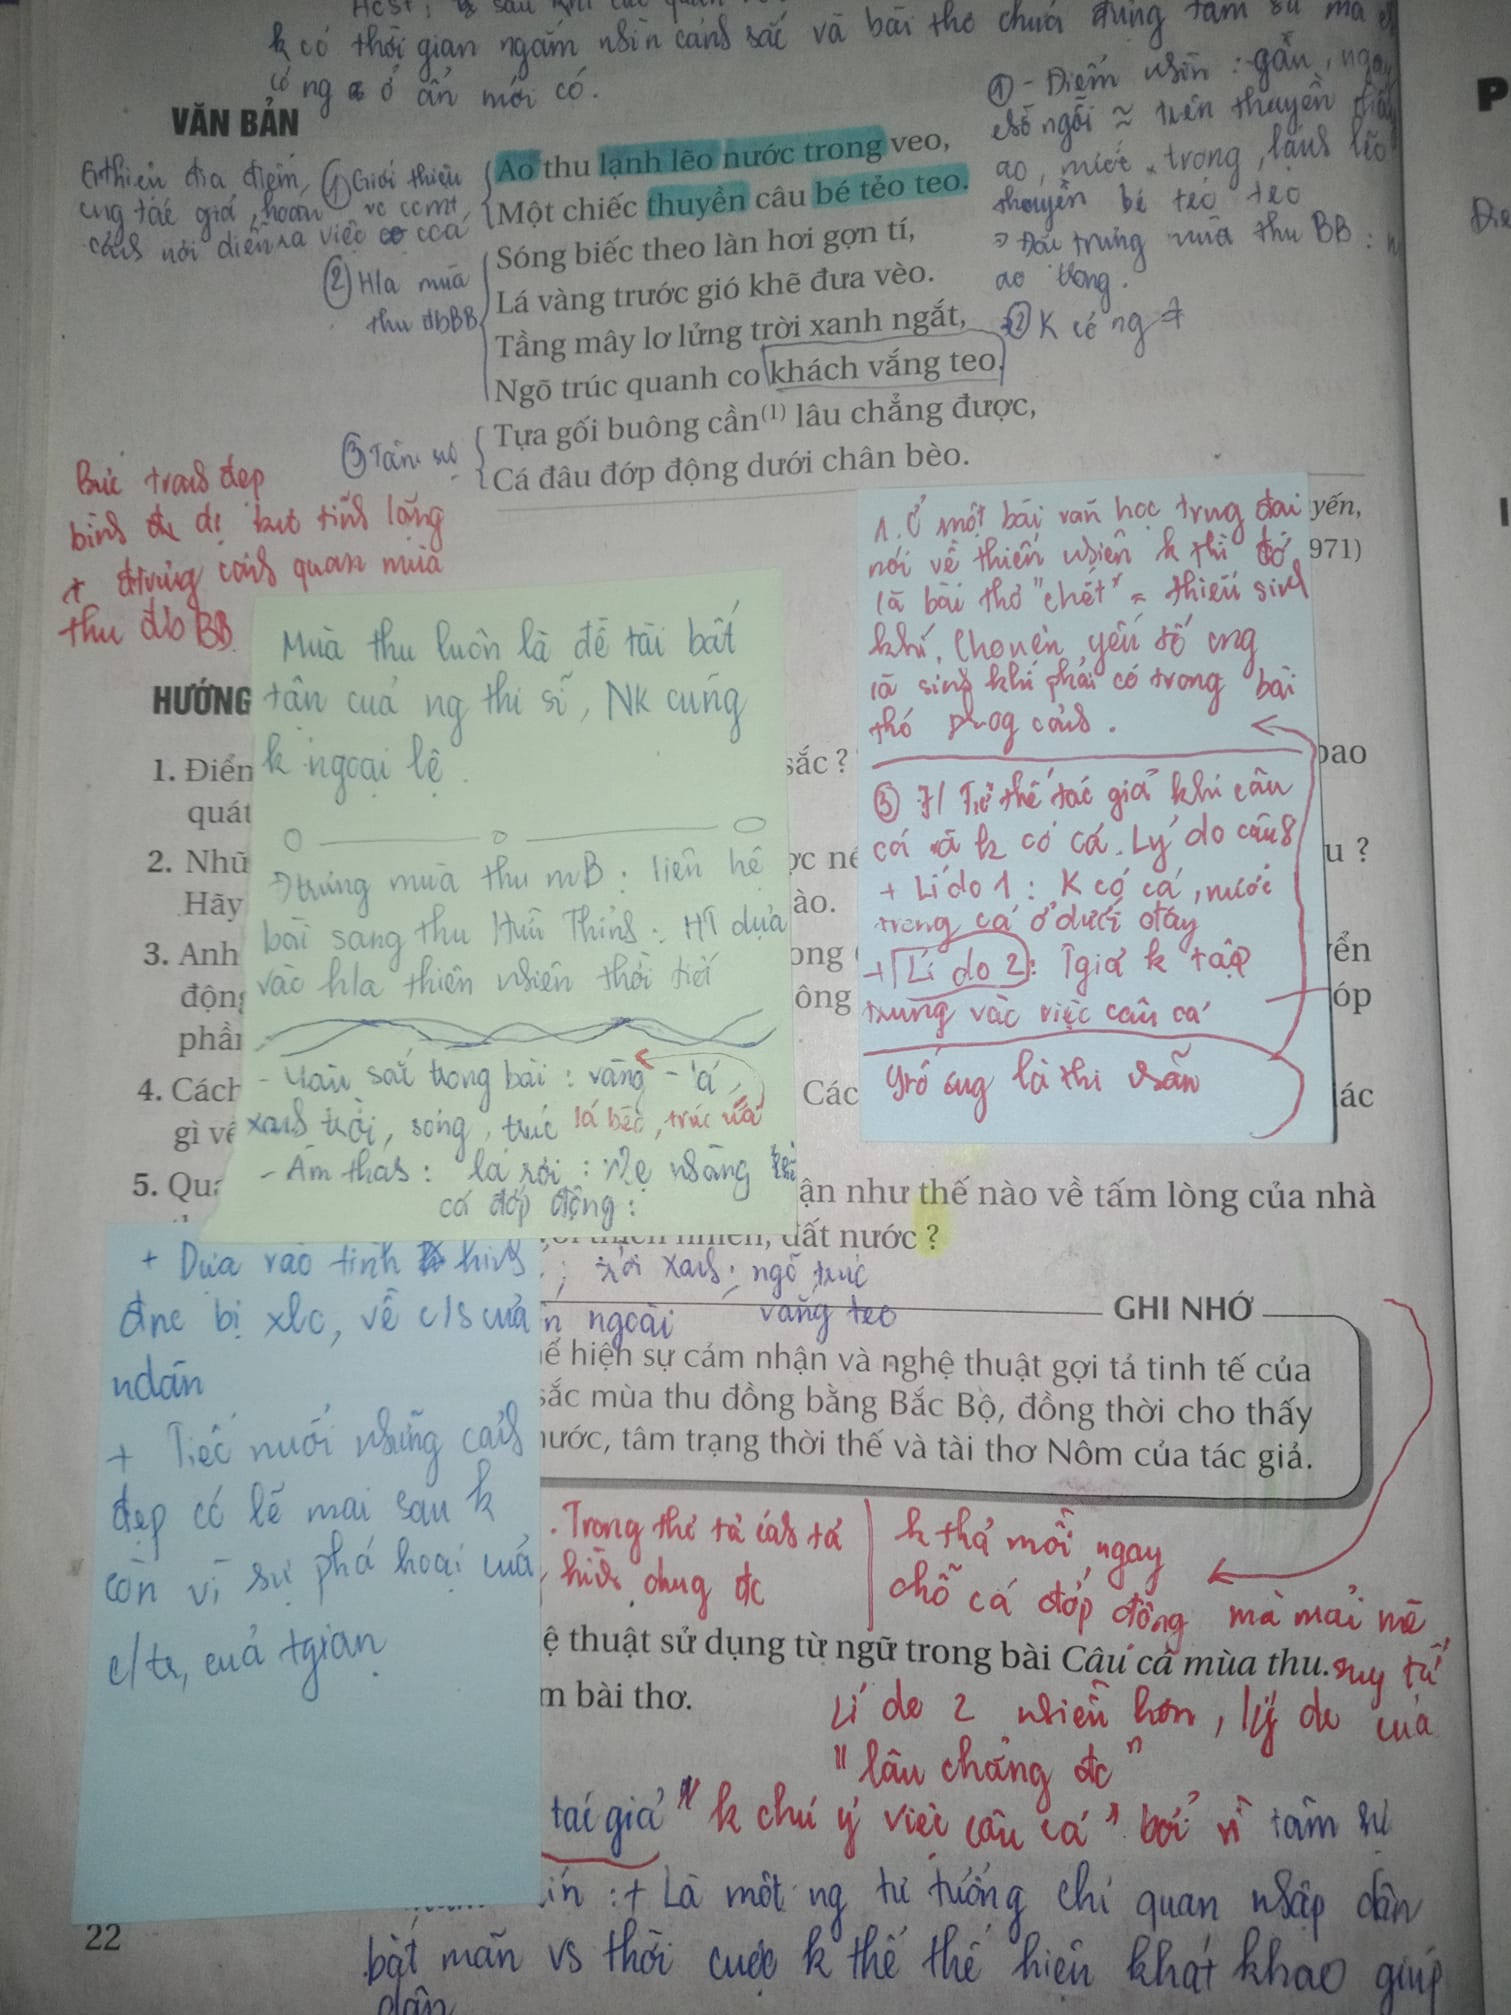 k có thời gian ngắm nhìn cảnh sắc và bài thơ chứa đựng tâm sự mà
có ng ở ẩn mới có.
VĂN BẢN
Gthiệu địa điểm,
ưng tác giả, hoàn
cảnh nơi diễn ra việc cca
① Giới thiệu
vc ccmt,
Ao thu lạnh lẽo nước trong veo,
Một chiếc thuyền câu bé tẻo teo.
② Hla mùa
thu đbBB
Sóng biếc theo làn hơi gợn tí,
Lá vàng trước gió khẽ đưa vèo.
Tầng mây lơ lửng trời xanh ngắt,
Ngõ trúc quanh co khách vắng teo.
③ Tâm sự
Tựa gối buông cần(1) lâu chẳng được,
Cá đâu đớp động dưới chân bèo.
① - Điểm nhìn : gần, ngay
chỗ ngồi ≈ trên thuyền
ao, nước trong, lạnh lẽo
thuyền bé tẻo teo
→ Đặc trưng mùa thu BB :
ao trong.
② K có ng
yến,
971)
Bức tranh đẹp
bình dị tĩnh lặng
+ đtrưng cảnh quan mùa
thu đb BB
HƯỚNG
Mùa thu luôn là đề tài bất
tận của ng thi sĩ, NK cũng
k ngoại lệ.
→ trưng mùa thu mB : liên hệ
bài sang thu Hữu Thỉnh : HT dựa
vào hla thiên nhiên thời tiết
- Màu sắc trong bài : vàng - lá,
xanh trời, sóng, trúc lá bèo, trúc
- Âm thanh : lá rơi : nhẹ nhàng
cá đớp động :
1. Ở một bài văn học trung đại
nói về thiên nhiên k thì đó
là bài thơ "chết" = thiếu sinh
khí. Cho nên yếu tố ng
là sinh khí phải có trong bài
thơ phog cảnh.
③ Tư thế tác giả khi câu
cá và k có cá. Lý do
+ Lí do 1 : K có cá, nước
trong cá ở dưới đáy
+ Lí do 2 : Tgiả k tập
trung vào việc câu cá
là thi nhân
1. Điển
sắc ?
bao
quát
2. Nhữ
ợc né
u ?
Hãy
ào.
3. Anh
ong
ển
động
ông
óp
phần
4. Cách
Các
ác
gì về
5. Qua
ận như thế nào về tấm lòng của nhà
đất nước ?
trời xanh, ngõ trúc
ngoài vắng teo
GHI NHỚ
ể hiện sự cảm nhận và nghệ thuật gợi tả tinh tế của
sắc mùa thu đồng bằng Bắc Bộ, đồng thời cho thấy
nước, tâm trạng thời thế và tài thơ Nôm của tác giả.
+ Dựa vào tình hình
đnc bị xlc, về c/s của
ndân
+ Tiếc nuối những cảnh
đẹp có lẽ mai sau k
còn vì sự phá hoại của
c/tr, của tgian
. Trong thơ tả cảnh tả
hình dung đc
k thả mồi ngay
chỗ cá đớp động mà mải mê
suy tư
ệ thuật sử dụng từ ngữ trong bài Câu cá mùa thu.
m bài thơ.
Lí do 2 nhiều hơn, lý do của
"lâu chẳng đc"
tác giả "k chú ý việc câu cá" bởi vì tâm sự
: + Là một ng tư tưởng chí quan nhập dân
bất mãn vs thời cuộc k thể thể hiện khát khao giúp
dân
22